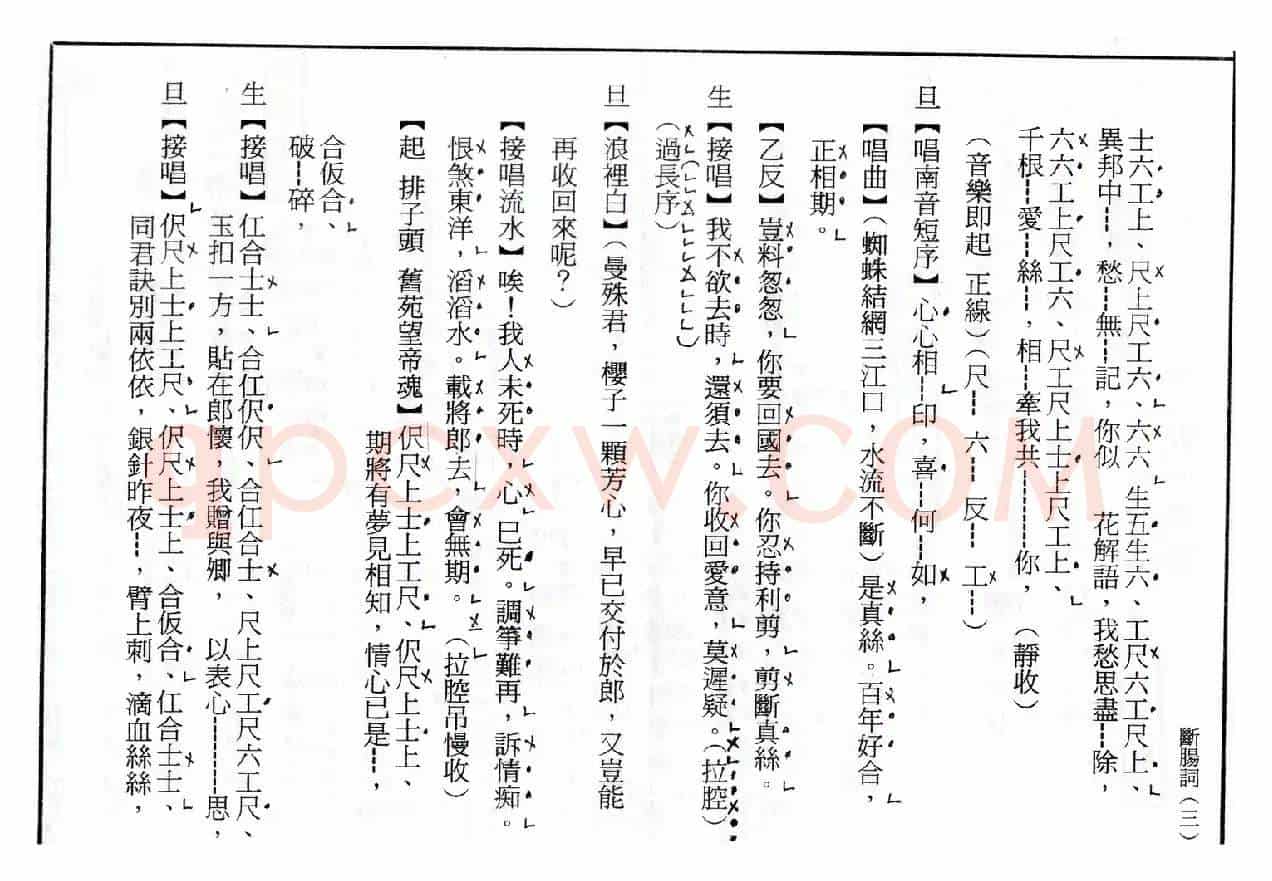 斷腸詞（三）
士六工上、尺上尺工六、六六 生五生六、工尺六工尺上、
異邦中┅，愁┅無┅記，你似 花解語，我愁思盡┅除，
六六工上尺工六、尺工尺上士上尺工上、
千根┅愛┅絲┅，相┅牽我共┅┅┅你，（靜收）
（音樂即起 正線）（尺┅ 六┅ 反┅ 工┅）
旦【唱南音短序】心心相┅印，喜┅何┅如，
【唱曲】（蜘蛛結網三江口，水流不斷）是真絲。百年好合，
正相期。
【乙反】豈料怱怱，你要回國去。你忍持利剪，剪斷真絲。
生【接唱】我不欲去時，還須去。你收回愛意，莫遲疑。（拉腔）
（過長序）
旦【浪裡白】（曼殊君，櫻子一顆芳心，早已交付於郎，又豈能
再收回來呢？）
【接唱流水】唉！我人未死時，心巳死。調箏難再，訴情痴。
恨煞東洋，滔滔水。載將郎去，會無期。（拉腔吊慢收）
【起 排子頭 舊苑望帝魂】伬尺上士上工尺、伬尺上士上、
期將有夢見相知，情心已是┅，
合仮合、
破┅碎，
生【接唱】仜合士士、合仜伬伬、合仜合士、尺上尺工尺六工尺、
玉扣一方，貼在郎懷，我贈與卿， 以表心┅┅┅思，
旦【接唱】伬尺上士上工尺、伬尺上士上、合仮合、仜合士士、
同君訣別兩依依，銀針昨夜┅，臂上刺，滴血絲絲，
gpcxw.com